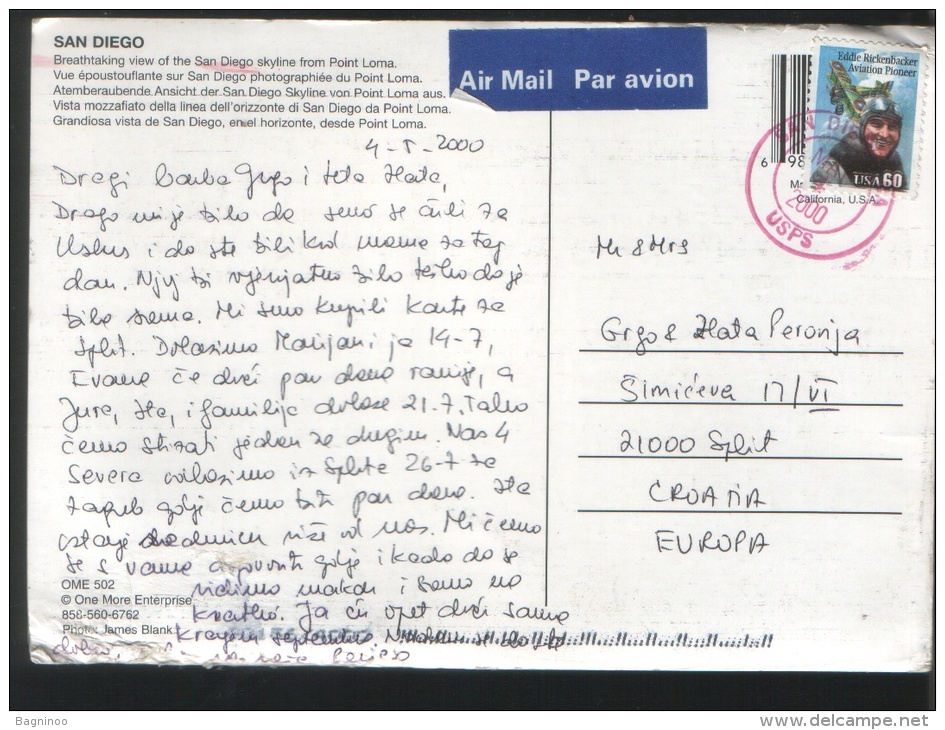 SAN DIEGO
Breathtaking view of the San Diego skyline from Point Loma.
Vue époustouflante sur San Diego photographiée du Point Loma.
Atemberaubende Ansicht der San Diego Skyline von Point Loma aus.
Vista mozzafiato della linea dell'orizzonte di San Diego da Point Loma.
Grandiosa vista de San Diego, en el horizonte, desde Point Loma.
Air Mail Par avion
Eddie Rickenbacker
Aviation Pioneer
USA 60
6 98
California, U.S.A.
SAN
2000
USPS
2000
Dragi barba Grgo i teta Zlata,
Drago mi je bilo da smo se čuli za
Uskrs i da ste bili kod mame za taj
dan. Njoj bi vjerojatno bilo teško da je
bila sama. Mi smo kupili karte za
Split. Dolazimo Marijan i ja 14-7,
Evame će doći par dana ranije, a
Jure, i familija dolaze 21.7. Tako
ćemo stizati jedan za drugim. Nas 4
Severa odlazimo iz Splita 26-7 za
Zagreb gdje ćemo biti par dana.
ostaje više od nas. Mi ćemo
se s vama gdje i kada da se
vidimo makar i samo na
kratko. Ja ću opet doći sama
krajem septembra
dobro,
Mr & Mrs
Grgo & Zlata Peronja
Šimićeva 17/VI
21000 Split
CROATIA
EUROPA
OME 502
© One More Enterprise
858-560-6762
Photo: James Blank
Bagninoo
www.delcampe.net